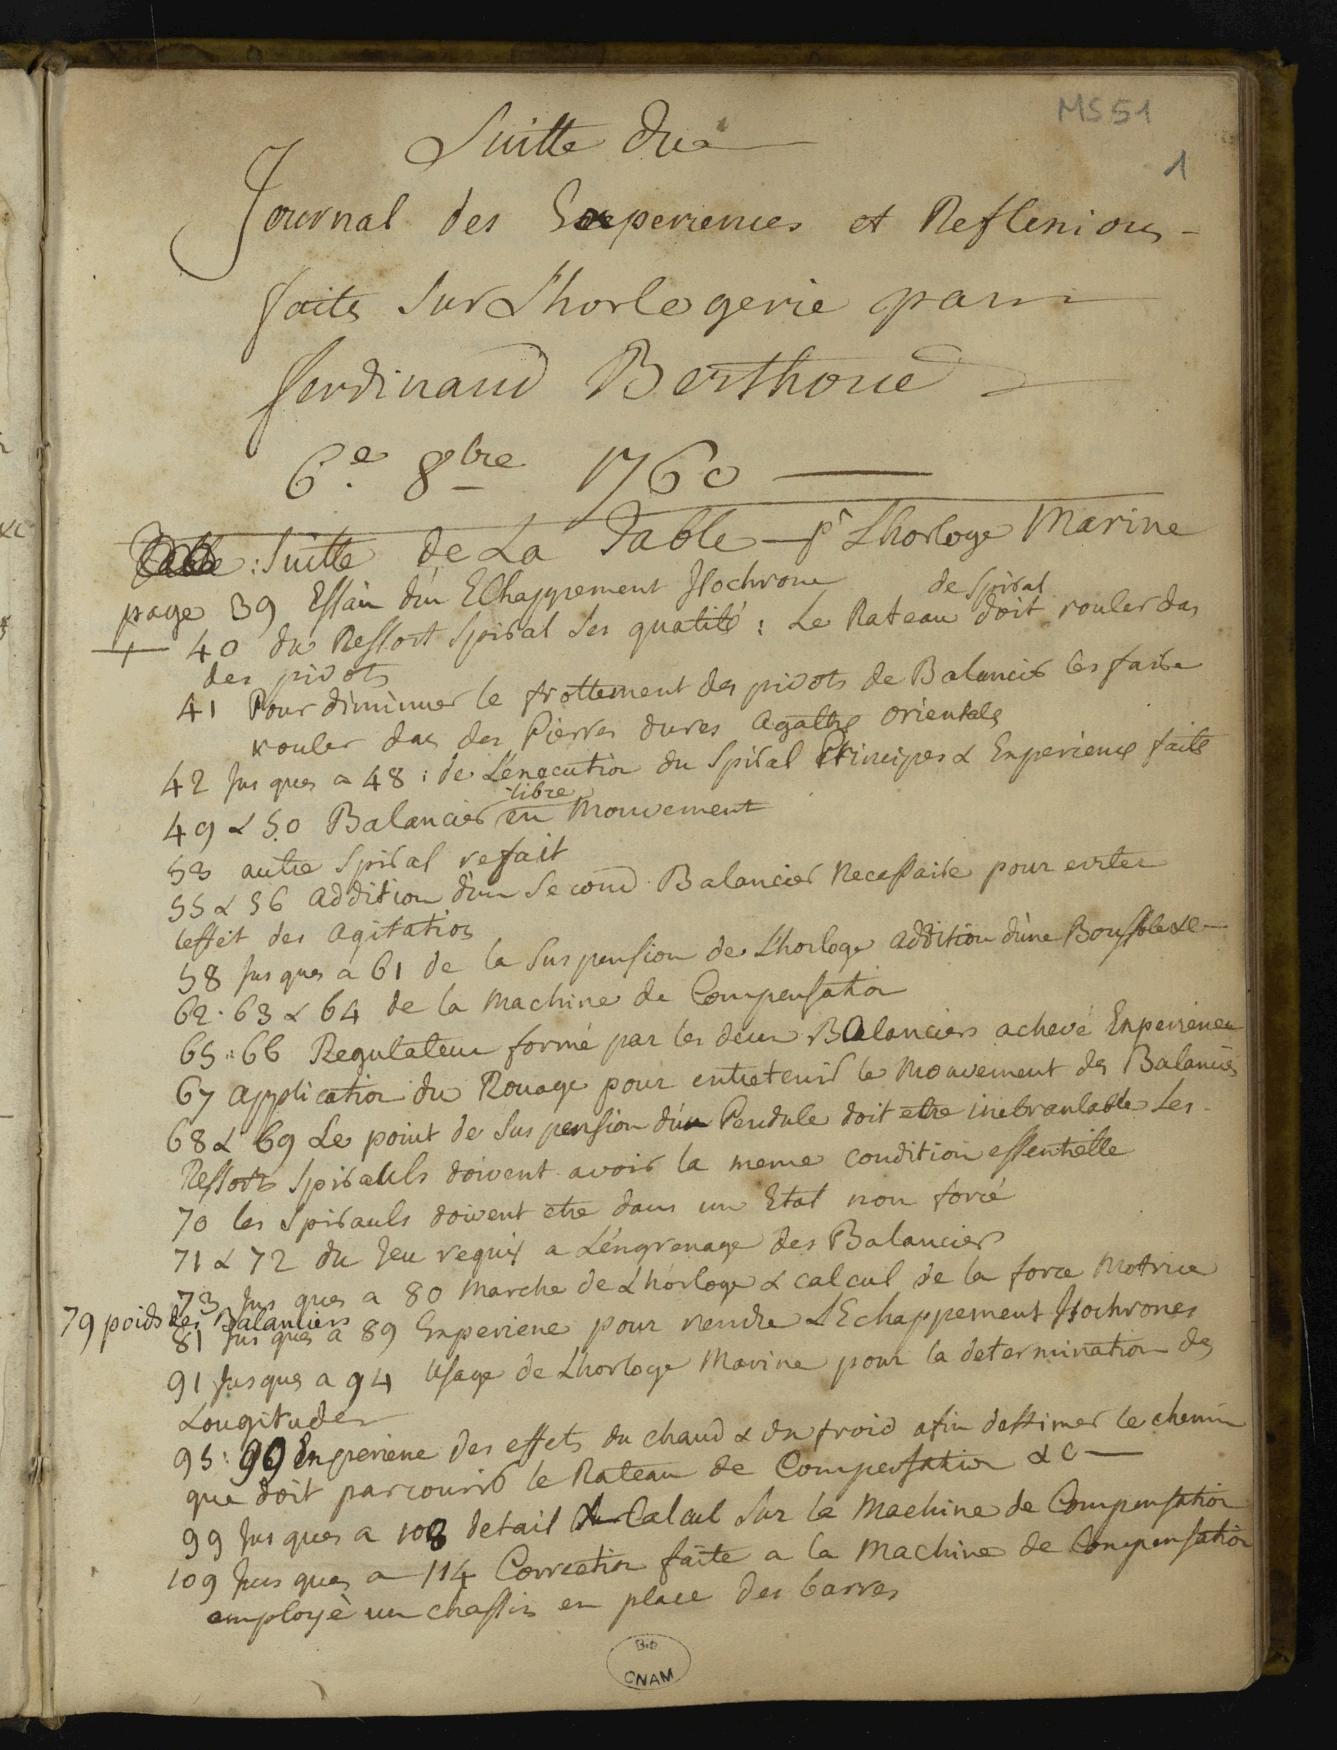 MS 51
1
Suitte du
Journal des Experiences et Reflexions
faites Sur L'horlogerie par
ferdinand Berthoud
6.e 8bre 1760
Suitte de La Table pr Lhorloge Marine
page 39 Essai d'un Echappement Isochrone
de Spiral
+ 40 du Ressort Spiral Ses qualité : Le Rateau doit rouler das
des pivots
41 Pour diminuer le frottement des pivots de Balancier les faire
rouler das des Pierres dures agathe orientale
42 Jusques a 48 : de L'execution du Spiral Principes & Experience faite
libre
49 & 50 Balancier en Mouvement
53 autre Spiral refait
55 & 56 addition d'un Second Balancier Necessaire pour eviter
l'effet des agitations
58 Jusques a 61 de la Suspension de L'horloge addition d'une Boussole &c
62. 63 & 64 de la Machine de Compensation
65 : 66 Regulateur formé par les deux Balanciers achevé Experience
67 application du Rouage pour entretenir le Mouvement des Balanciers
68 & 69 Le point de Suspension d'un Pendule doit etre inebranlable Les
Ressorts Spirauls doivent avoir la meme condition essentielle
70 les Spirauls doivent etre dans un Etat non forcé
71 & 72 du Jeu requis a L'engrenage des Balanciers
73 Jusques a 80 Marche de L'horloge & calcul de la force Motrice
79 poids des Balanciers
81 Jusques a 89 Experience pour rendre L'Echappement Isochrones
91 Jusques a 94 Usage de Lhorloge Marine pour la determination des
Longitudes
95 : 96 Experience des effets du chaud & du froid afin d'estimer le chemin
que doit parcourir le Rateau de Compensation &c
99 Jusques a 108 detail du Calcul Sur la Machine de Compensation
109 Jusques a 114 Correction faite a la Machine de Compensation
employé un chassis en place des barres
Bib
CNAM